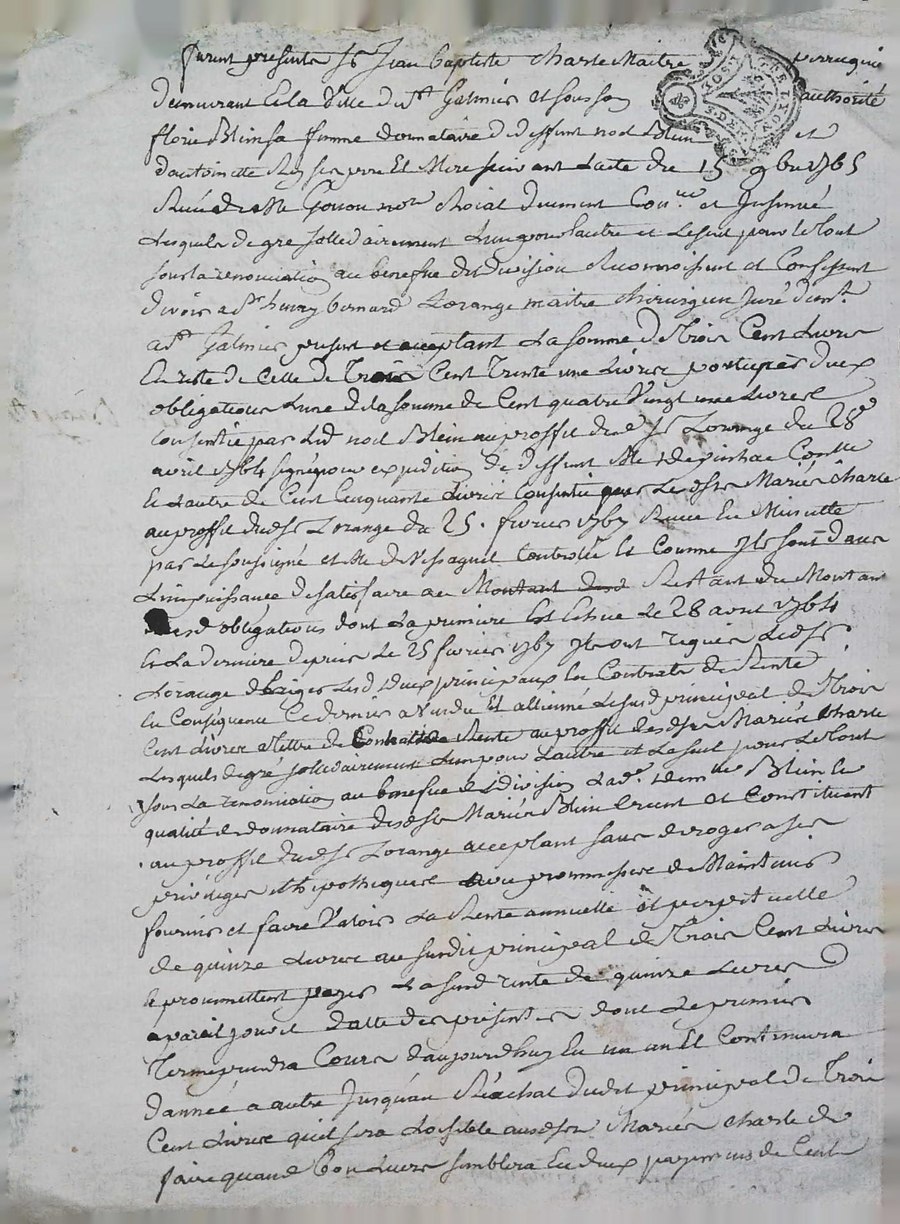 furent presents Sr Jean baptiste charle Maitre perruquié
demeurant En la Ville de St Galmier et sous son authorité
florie Blein sa femme donnataire de deffunt noel Blein et
d'antoinette Rey ses pere Et Mere suivant Lacte du 15 9bre 1765
Receu de Me Goiron nore Roial deument Conlé et Jnsinué
Lesquels de gré sollidairement L'un pour L'autre et Le seul pour Le tout
sous la renonciation au benefice de division Reconnoissent et Confessent
devoir a Sr henry bernard Lorange maitre chirurgien Juré demt
a St Galmier present et acceptant La somme de Trois Cent Livres
En reste de Celle de Trois Cent Trente une Livres portée par deux
obligations L'une de la somme de Cent quatre Vingt une Livres
Consentie par Led noel Blein au proffit dud Sr Lorange du 28e
avril 1764 signé pour expedition de deffunt Me Contlé
Et L'autre de Cent Cinquante Livres Consentie par Lesds Mariés charle
au proffit dud Sr Lorange du 25. fevrier 1767 Receue En Minutte
par Le soussigné et Me de Vssaguel Controllée Et Comme Jls sont dans
L'impuissance de satisfaire au Montant desd Restant du Montant
desd obligations dont La premiere Est Echue Le 28 avril 1764
Et La derniere depuis Le 25 fevrier 1767 Jls ont requis Led Sr
Lorange d'Eriger Lesd deux principaux En Contrats de Rente
En Conséquence Ce dernier a Vendu Et allienné Le susd principal de Trois
Cent Livres a Tittre de Contrat de Rente au proffit desds Mariés Charle
Lesquels de gré sollidairement L'un pour L'autre et Le seul pour Le tout
sous La renonciation au benefice de division Lad. Blein En
qualité de donnataire desds Mariés Blein Creent et Constituent
au proffit dud Sr Lorange acceptant sans deroger a ses
privileges et hipotheques avec prommesse de Maintenir
fournir et faire Valoir La Rente annuelle Et perpetuelle
de quinze Livres au susdit principal de Trois Cent Livres
et prommettent payer La susd rente de quinze Livres
a pareil jour et datte des presentes dont Le premier
Terme prendra Cours d'aujourdhuy En un an Et Continuera
d'année a autre Jusqu'au Rachat dudit principal de Trois
Cent Livres qu'il sera Loisible auxds Mariés Charle de
faire quand bon Leur semblera En deux payemens de Cent